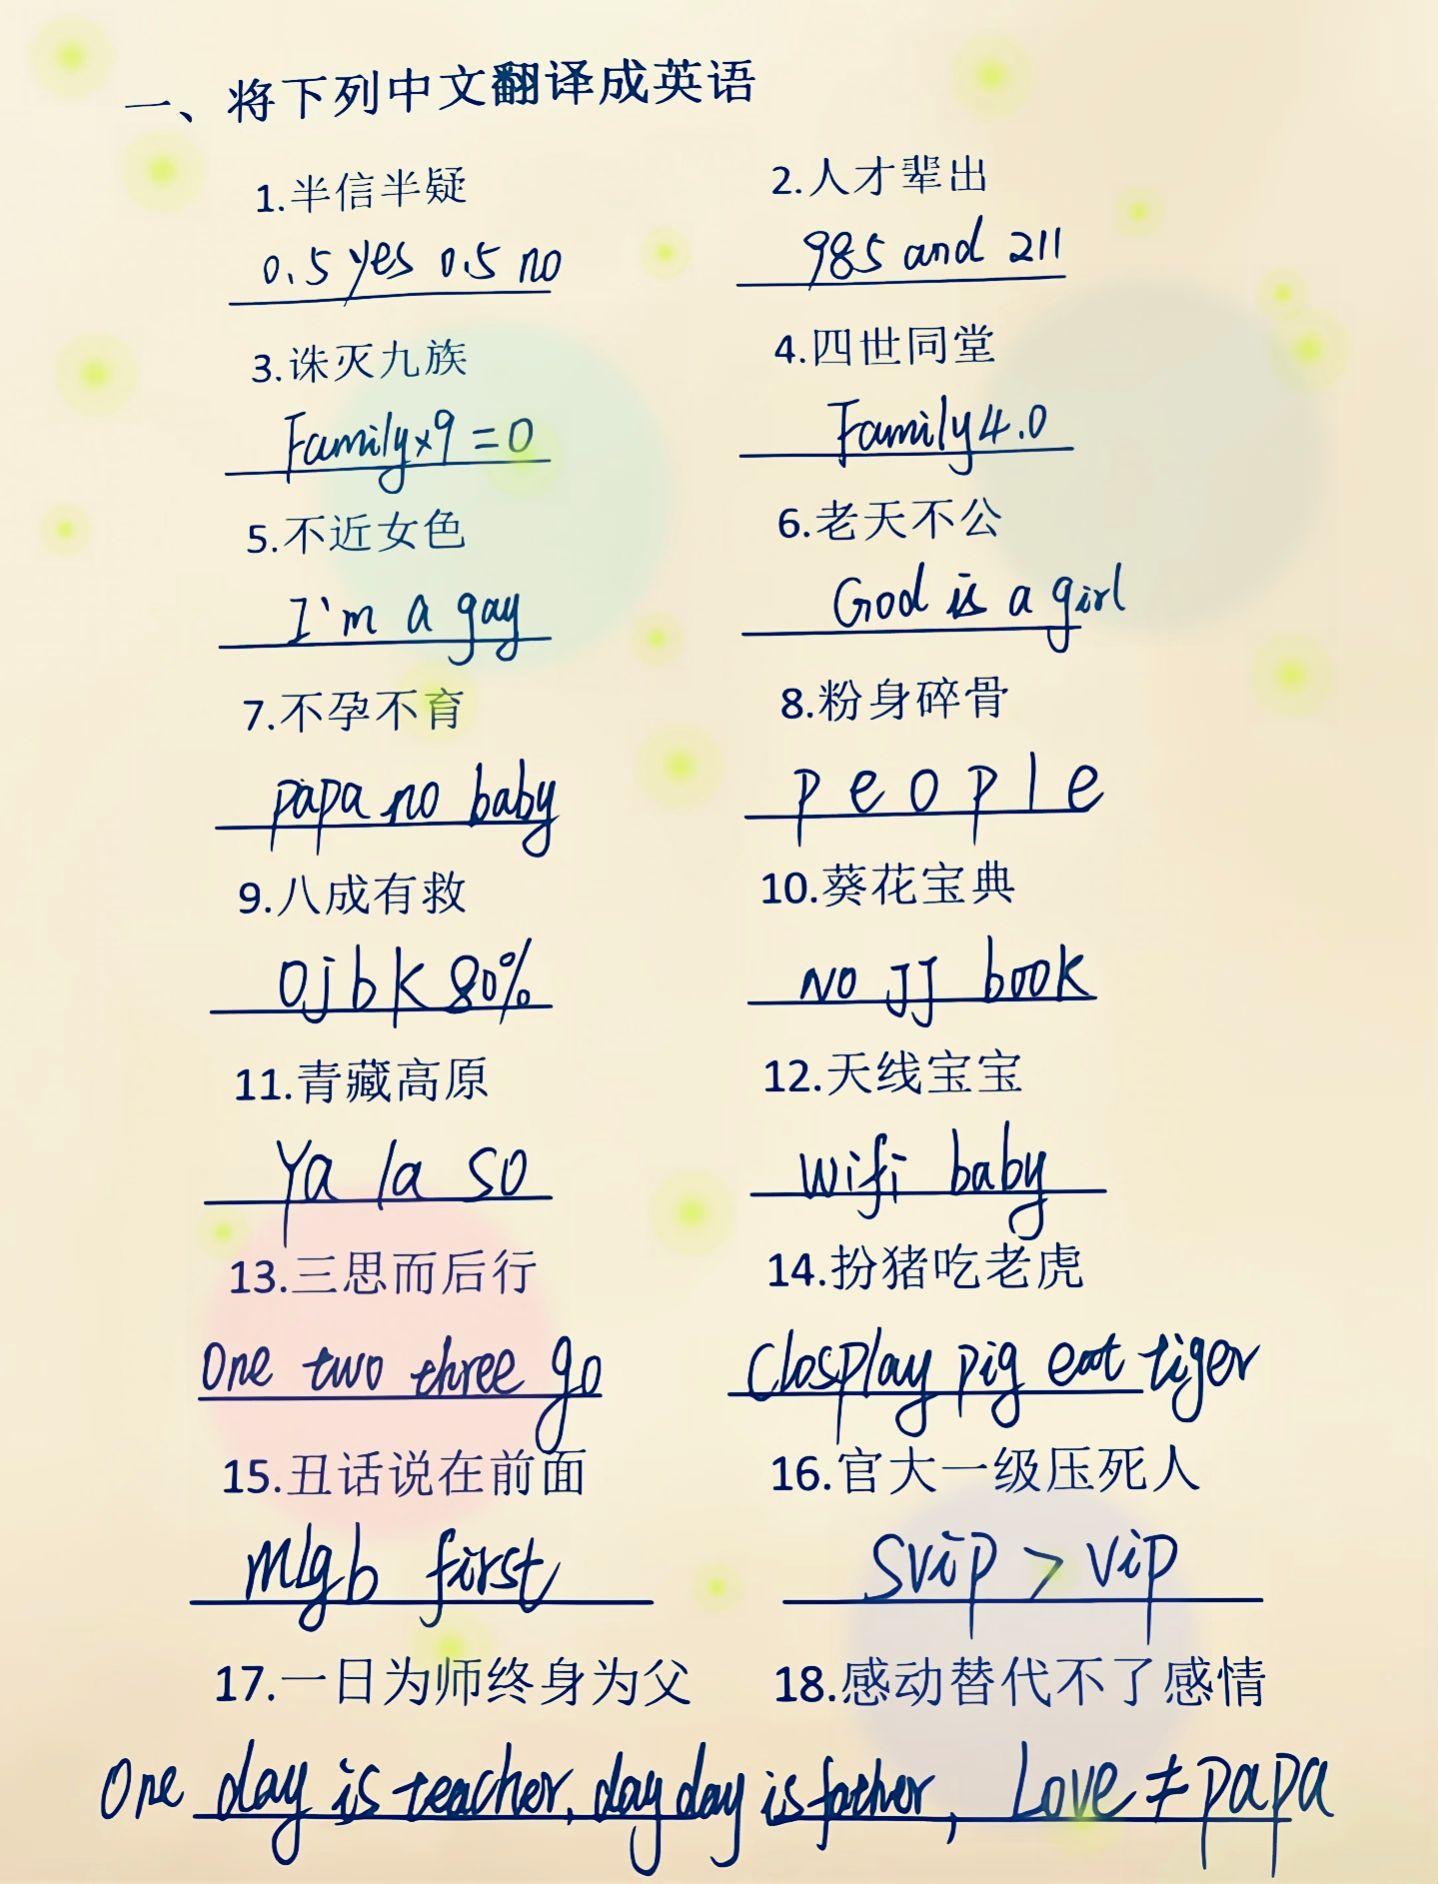 一、将下列中文翻译成英语
1.半信半疑
0.5 yes 0.5 no
2.人才辈出
985 and 211
3.诛灭九族
Family×9=0
4.四世同堂
Family4.0
5.不近女色
I'm a gay
6.老天不公
God is a girl
7.不孕不育
papa no baby
8.粉身碎骨
p e o p l e
9.八成有救
Ojbk 80%
10.葵花宝典
NO JJ book
11.青藏高原
Ya la so
12.天线宝宝
wifi baby
13.三思而后行
One two three go
14.扮猪吃老虎
Closplay pig eat tiger
15.丑话说在前面
Mlgb first
16.官大一级压死人
Svip > vip
17.一日为师终身为父
One day is teacher, day day is father,
18.感动替代不了感情
Love ≠ papa